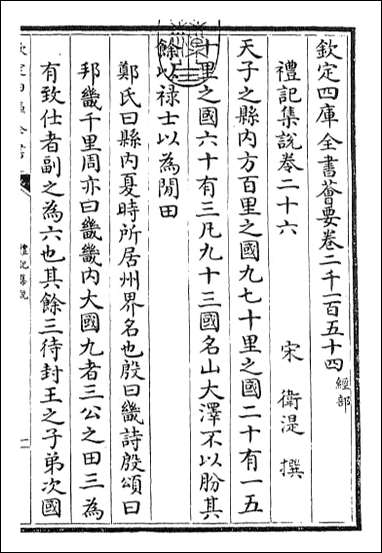 欽定四庫全書薈要卷二千一百五十四 經部
禮記集說卷二十六
宋 衛湜 撰
天子之縣內方百里之國九七十里之國二十有一五
十里之國六十有三凡九十三國名山大澤不以朌其
餘以祿士以為閒田
鄭氏曰縣內夏時所居州界名也殷曰畿詩殷頌曰
邦畿千里周亦曰畿畿內大國九者三公之田三為
有致仕者副之為六也其餘三待封王之子弟次國
欽定四庫全書
禮記集說
一